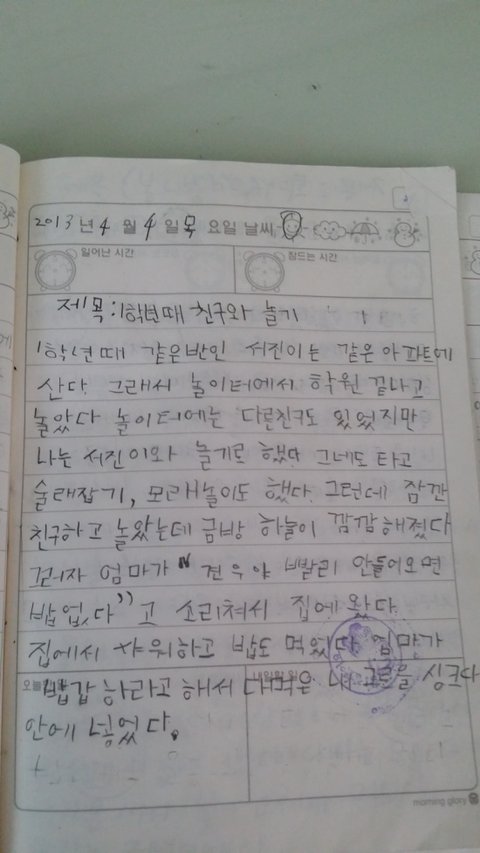 2013 년 4 월 4 일 목 요일 날씨
일어난 시간 잠드는 시간
제목:1학년때 친구와 놀기
1학년때 같은반인 서진이는 같은아파트에
산다. 그래서 놀이터에서 학원 끝나고
놀았다 놀이터에는 다른친구도 있었지만
나는 서진이와 놀기로 했다 그네도 타고
술래잡기, 모래놀이도 했다. 그런데 잠깐
친구하고 놀았는데 금방 하늘이 깜깜해졌다
엄마가 " 견우야 빨리 안들어오면
밥없다" 고 소리쳐서 집에 왔다.
집에서 샤워하고 밥도 먹었다 엄마가
밥값 하라고 해서 다먹은 내 그릇을 싱크다
안에 넣었다.
morning glory